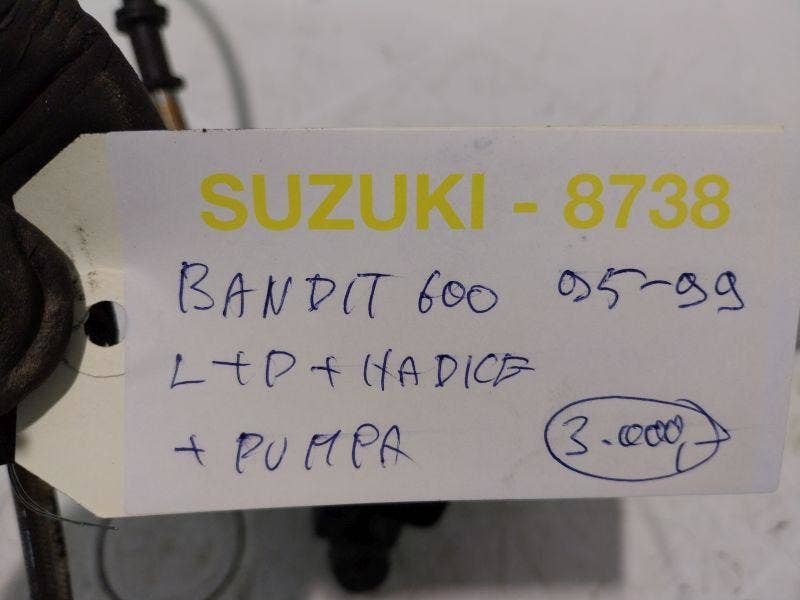 SUZUKI - 8738
BANDIT 600 95-99
L+P+HADICE
+ PUMPA 3.000,-